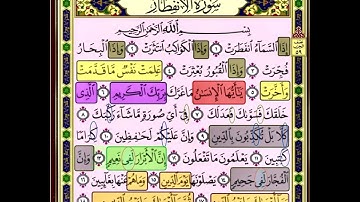 سُورَةُ الِانفِطَارِ
بِسْمِ اللَّهِ الرَّحْمَٰنِ الرَّحِيمِ
إِذَا السَّمَاءُ انفَطَرَتْ ۝١ وَإِذَا الْكَوَاكِبُ انتَثَرَتْ ۝٢ وَإِذَا الْبِحَارُ
فُجِّرَتْ ۝٣ وَإِذَا الْقُبُورُ بُعْثِرَتْ ۝٤ عَلِمَتْ نَفْسٌ مَّا قَدَّمَتْ
وَأَخَّرَتْ ۝٥ يَا أَيُّهَا الْإِنسَانُ مَا غَرَّكَ بِرَبِّكَ الْكَرِيمِ ۝٦ الَّذِي
خَلَقَكَ فَسَوَّاكَ فَعَدَلَكَ ۝٧ فِي أَيِّ صُورَةٍ مَّا شَاءَ رَكَّبَكَ ۝٨
كَلَّا بَلْ تُكَذِّبُونَ بِالدِّينِ ۝٩ وَإِنَّ عَلَيْكُمْ لَحَافِظِينَ ۝١٠ كِرَامًا
كَاتِبِينَ ۝١١ يَعْلَمُونَ مَا تَفْعَلُونَ ۝١٢ إِنَّ الْأَبْرَارَ لَفِي نَعِيمٍ ۝١٣ وَإِنَّ
الْفُجَّارَ لَفِي جَحِيمٍ ۝١٤ يَصْلَوْنَهَا يَوْمَ الدِّينِ ۝١٥ وَمَا هُمْ عَنْهَا بِغَائِبِينَ ۝١٦